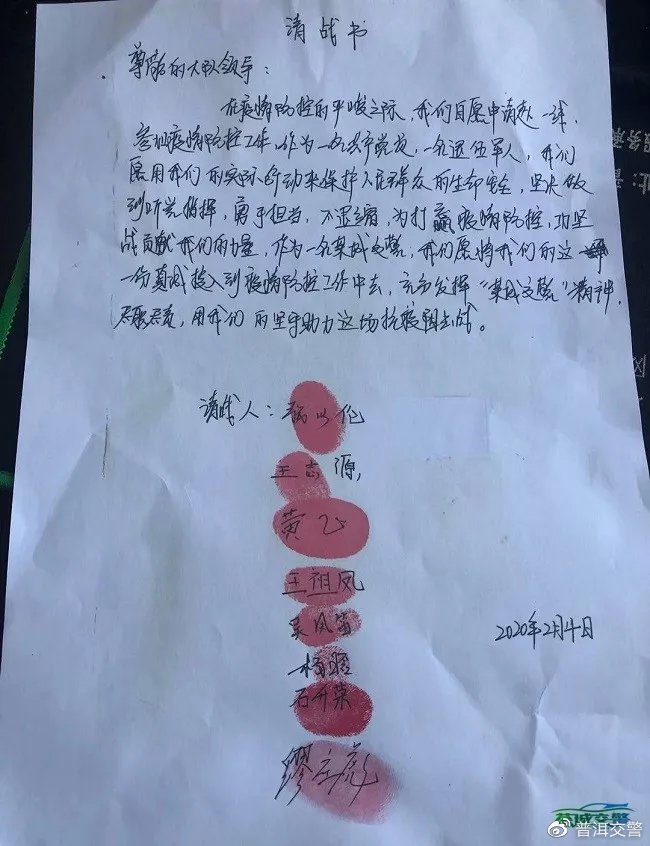 请战书
尊敬的大队领导：
在疫情防控的严峻之际，我们自愿申请赴一线，
参加疫情防控工作，作为一名共产党员，一名退伍军人，我们
愿用我们的实际行动来保护人民群众的生命安全，坚决做
到听党指挥，勇于担当，不退缩，为打赢疫情防控，攻坚
战贡献我们的力量，作为一名茶城交警，我们愿将我们的这
一份真诚投入到疫情防控工作中去，充分发挥“茶城交警”精神，
用我们的坚守助力这场抗疫阻击战。
请战人：
王志源，
黄飞
王祖凤
吴凤笛
杨
石开荣
缪立彪
2020年2月4日
茶城交警
普洱交警